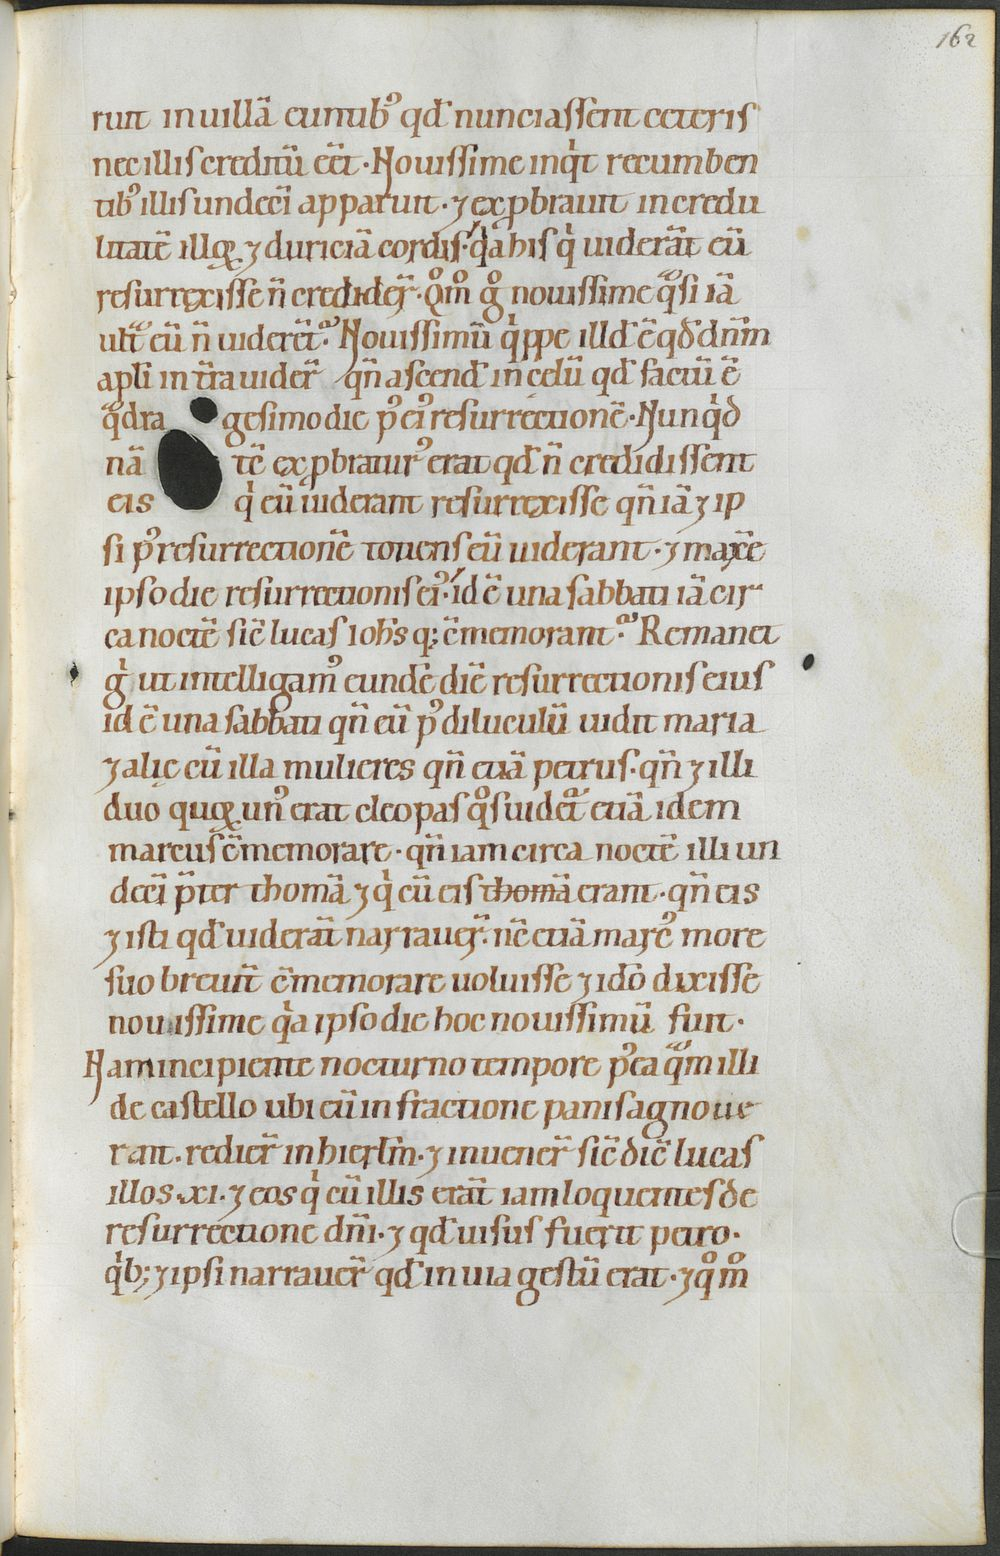 162
runt in uillā euntib᾽ qđ nunciassent ceteris
nec illis creditū eēt. Nouissime inq̇t recumben
tib᾽ illis undecī apparuit. ⁊ exꝓbrauit incredu
litatē illoꝝ ⁊ duriciā cordis. q̇a his q̇ uiderāt eū
resurrexisse n̄ credider̄. Qͦm̄ gͦ nouissime qͣsi iā
ult̄ͣ eū n̄ uiderēt? Nouissimū q̇ppe illđ ē qđ dn̄m
apłi in t̄ra uider̄ qn̄ ascenđ in celū qđ factū ē
qͣdragesimo die p᾽ ei᾽ resurrectionē. Nunq̇d
nā tē exꝓbratur᾽ erat qđ n̄ credidissent
eis q̇ eū uiderant resurrexisse qn̄ iā ⁊ ip
si p᾽ resurrectionē toties eū uiderant. ⁊ maxīe
ipso die resurrectionis ei᾽. id ē una sabbati iā cir
ca noctē sic̄ lucas Ioħs q; ēmemorant? Remanet
ġ ut intelligam᾽ eundē diē resurrectionis eius
id ē una sabbati qn̄ eū p᾽ diluculū uidit maria
⁊ alię cū illa mulieres qn̄ etiā petrus. qn̄ ⁊ illi
duo quoꝝ un᾽ erat cleopas qͦs uidēt͛ etiā idem
marcus ēmemorare. qn̄ iam circa noctē illi un
decī p̄ter thomā ⁊ q̇ cū eis thomā erant. qn̄ eis
⁊ isti qđ uiderāt narrauer̄. nē etiā marc᾽ more
suo breuit̄ ēmemorare uoluisse ⁊ idō dixisse
nouissime q̇a ipso die hoc nouissimū fuit.
Nam incipiente nocturno tempore p᾽ea qͣm illi
de castello ubi eū in fractione panis agnoue
rant. redier̄ in hierl̄m. ⁊ inuener̄ sic̄ dic̄ lucas
illos xi. ⁊ eos q̇ cū illis erāt iam loquentes de
resurrectione dn̄i. ⁊ qđ uisus fuerit petro.
q̇b; ⁊ ipsi narrauer̄ qđ in uia gestū erat. ⁊ qͦmͦ